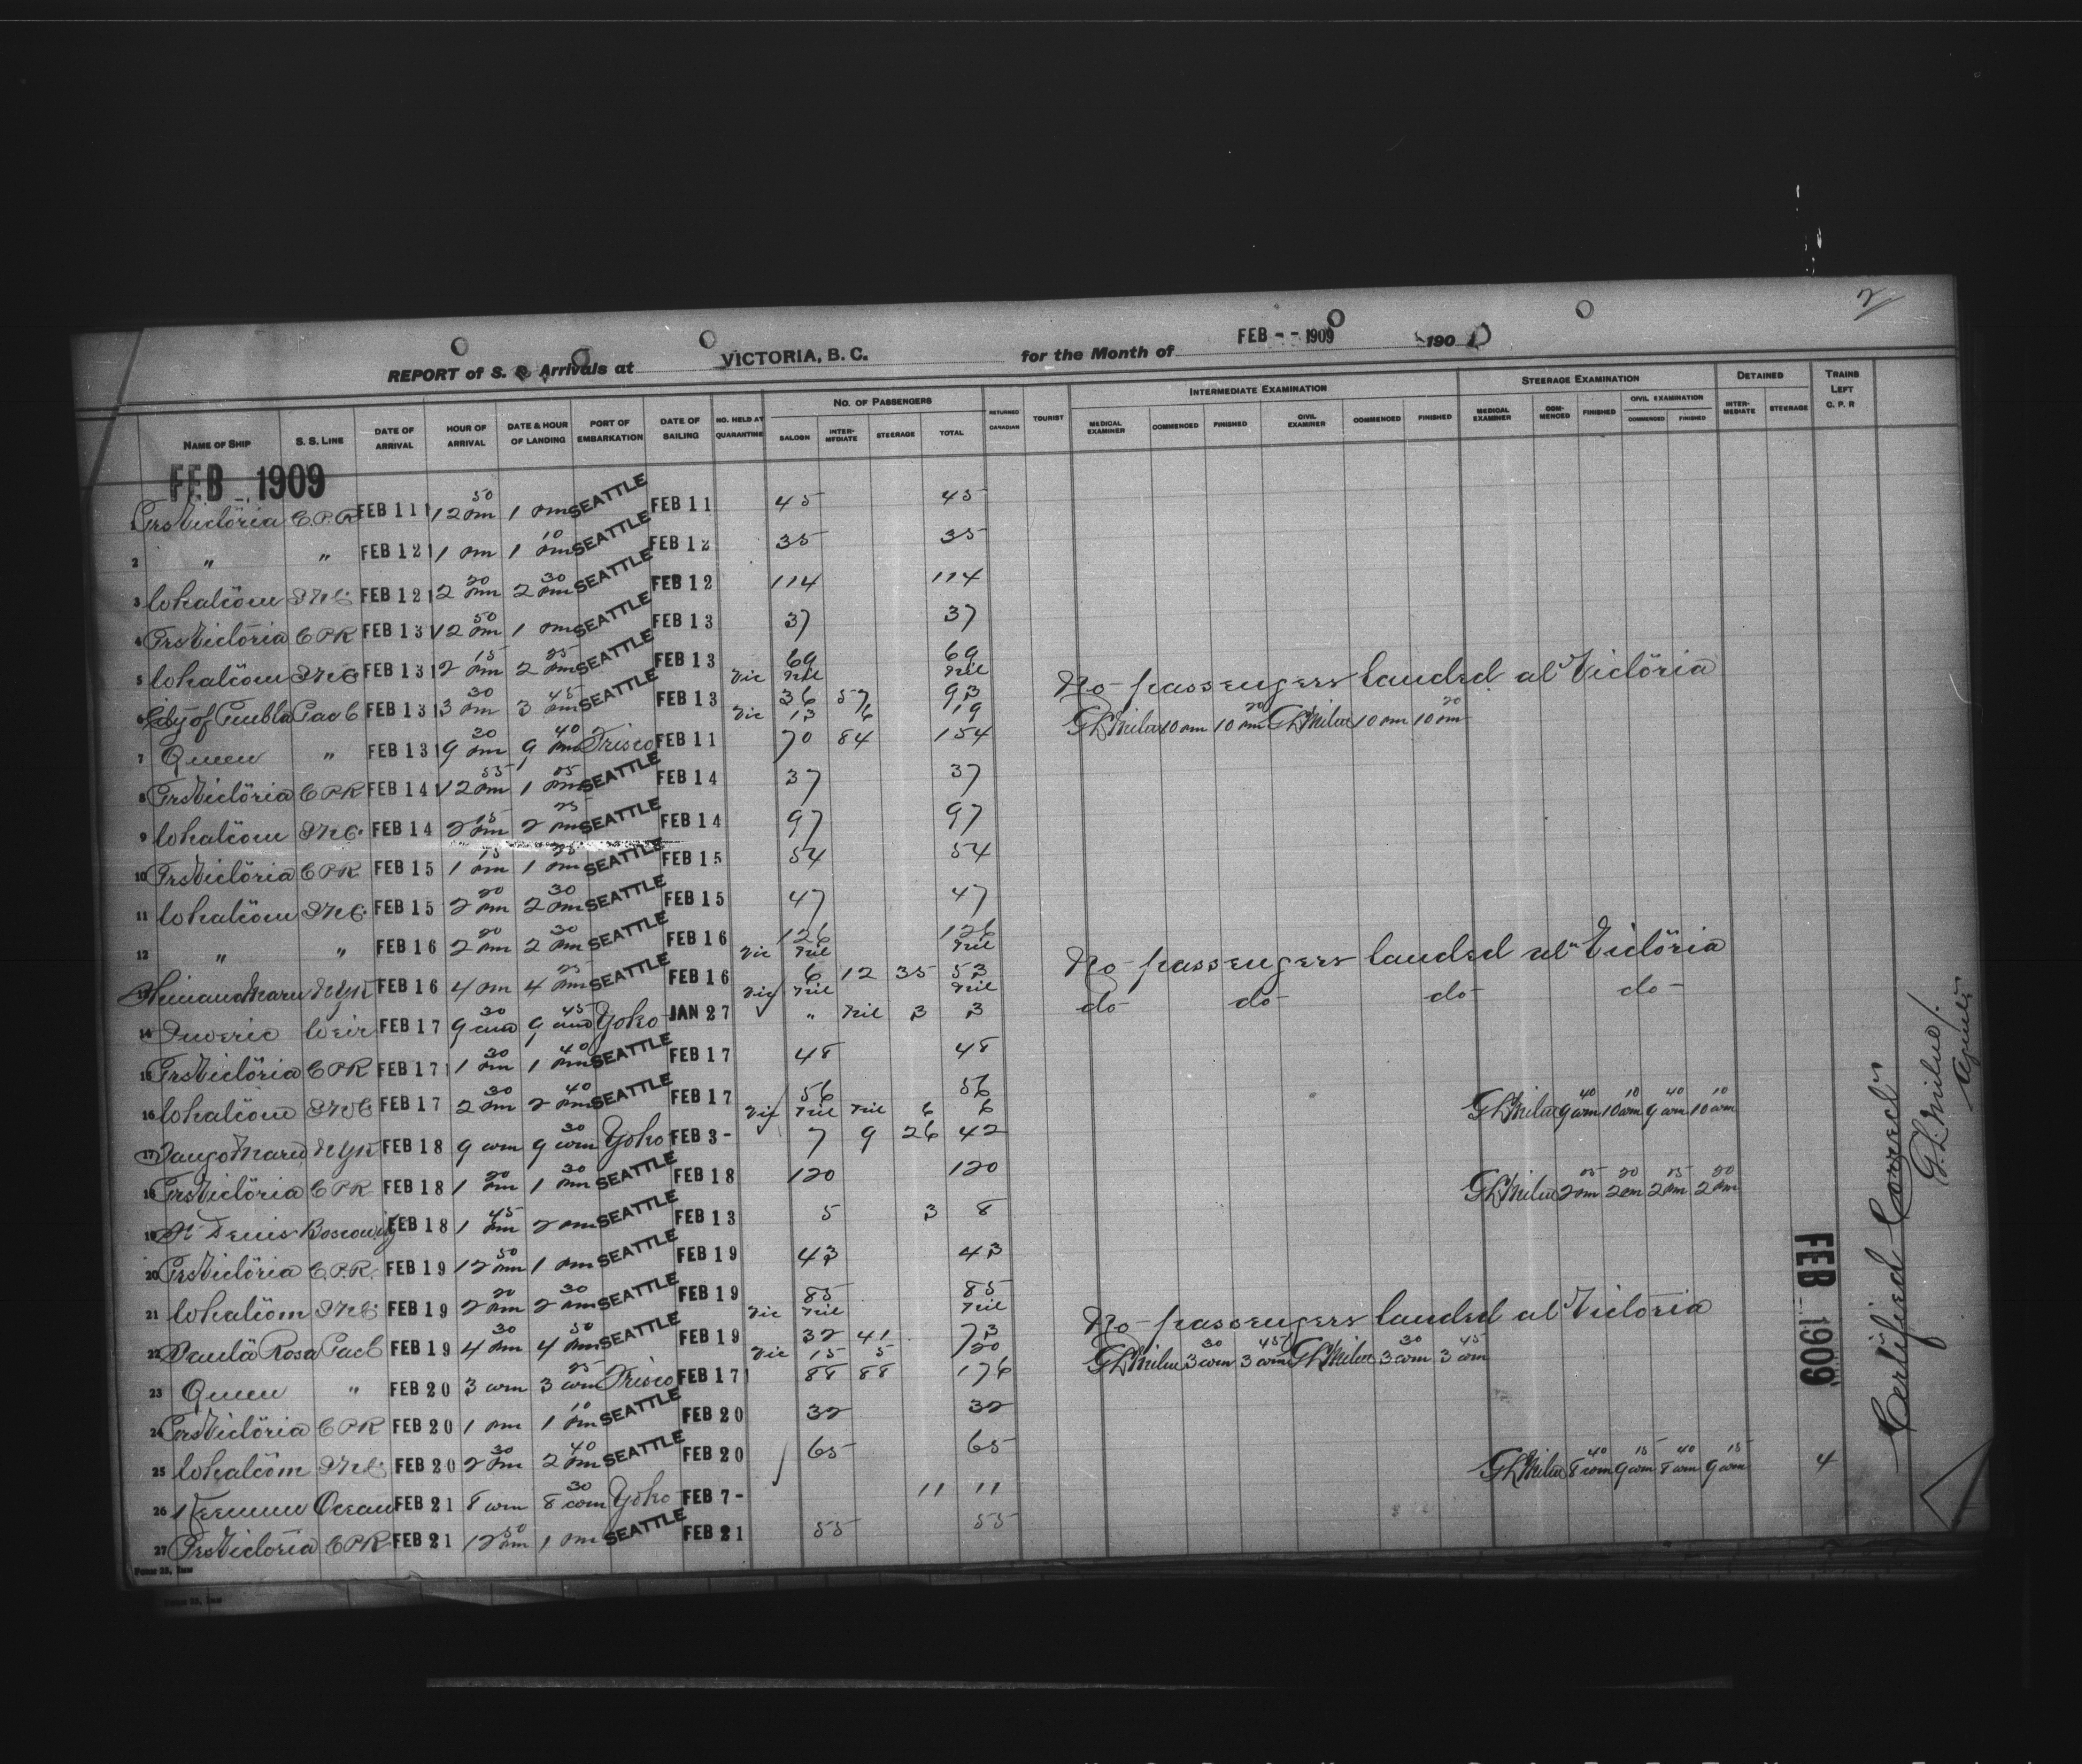 2
REPORT of S. S. Arrivals at VICTORIA, B. C. for the Month of FEB -- 1909 190
NAME OF SHIP S. S. LINE DATE OF ARRIVAL HOUR OF ARRIVAL DATE & HOUR OF LANDING PORT OF EMBARKATION DATE OF SAILING NO. HELD AT QUARANTINE NO. OF PASSENGERS SALOON INTER-MEDIATE STEERAGE TOTAL RETURNED CANADIAN TOURIST INTERMEDIATE EXAMINATION MEDICAL EXAMINER COMMENCED FINISHED CIVIL EXAMINER COMMENCED FINISHED STEERAGE EXAMINATION MEDICAL EXAMINER COM-MENCED FINISHED CIVIL EXAMINATION COMMENCED FINISHED DETAINED INTER-MEDIATE STEERAGE TRAINS LEFT C. P. R
FEB - 1909
1 Prs Victoria C.P.R FEB 11 12 50 pm 1 pm SEATTLE FEB 11 45 45
2 " " FEB 12 1 pm 1 10 pm SEATTLE FEB 12 35 35
3 Whatcom FEB 12 2 20 pm 2 30 pm SEATTLE FEB 12 114 114
4 Prs Victoria CPR FEB 13 12 50 pm 1 pm SEATTLE FEB 13 37 37
5 Whatcom FEB 13 2 15 pm 2 25 pm SEATTLE FEB 13 69 69
Vic nil nil No passengers landed at Victoria
6 City of Puebla Pac C FEB 13 3 30 pm 3 45 pm SEATTLE FEB 13 36 57 93
Vic 13 6 19 GLMilne 10 pm 10 20 pm GLMilne 10 pm 10 20 pm
7 Queen " FEB 13 9 30 pm 9 40 pm Frisco FEB 11 70 84 154
8 Prs Victoria CPR FEB 14 12 55 pm 1 05 pm SEATTLE FEB 14 37 37
9 Whatcom FEB 14 2 15 pm 2 25 pm SEATTLE FEB 14 97 97
10 Prs Victoria CPR FEB 15 1 15 pm 1 25 pm SEATTLE FEB 15 54 54
11 Whatcom FEB 15 2 20 pm 2 30 pm SEATTLE FEB 15 47 47
12 " " FEB 16 2 20 pm 2 30 pm SEATTLE FEB 16 126 126
Vic nil nil No passengers landed at Victoria
13 Shinano Maru NYK FEB 16 4 pm 4 25 pm SEATTLE FEB 16 6 12 35 53
Vic nil nil do do do do
14 Suveric Weir FEB 17 9 30 am 9 45 am Yoko JAN 27 " nil 3 3
15 Prs Victoria CPR FEB 17 1 30 pm 1 40 pm SEATTLE FEB 17 48 48
16 Whatcom FEB 17 2 30 pm 2 40 pm SEATTLE FEB 17 56 56
Vic nil nil 6 6 GLMilne 9 40 am 10 10 am 9 40 am 10 10 am
17 Tango Maru NYK FEB 18 9 am 9 30 am Yoko FEB 3- 7 9 26 42
18 Prs Victoria CPR FEB 18 1 20 pm 1 30 pm SEATTLE FEB 18 120 120
GLMilne 2 05 pm 2 20 pm 2 05 pm 2 20 pm
19 St Denis Boscowitz FEB 18 1 45 pm 2 pm SEATTLE FEB 13 5 3 8
20 Prs Victoria C.P.R. FEB 19 12 50 pm 1 pm SEATTLE FEB 19 43 43
21 Whatcom FEB 19 2 20 pm 2 30 pm SEATTLE FEB 19 85 85
Vic nil nil No passengers landed at Victoria
22 Santa Rosa Pac C FEB 19 4 30 pm 4 50 pm SEATTLE FEB 19 32 41 73
Vic 15 5 20 GLMilne 3 30 am 3 45 am GLMilne 3 30 am 3 45 am
23 Queen " FEB 20 3 am 3 25 am Frisco FEB 17 88 88 176
24 Prs Victoria CPR FEB 20 1 pm 1 10 pm SEATTLE FEB 20 32 32
25 Whatcom FEB 20 2 30 pm 2 40 pm SEATTLE FEB 20 65 65
GLMilne 8 40 am 9 15 am 8 40 am 9 15 am 4
26 Keemun Ocean FEB 21 8 am 8 30 am Yoko FEB 7- 11 11
27 Prs Victoria CPR FEB 21 12 50 pm 1 pm SEATTLE FEB 21 55 55
FEB - 1909
Certified Correct
G.L. Milne
Agent